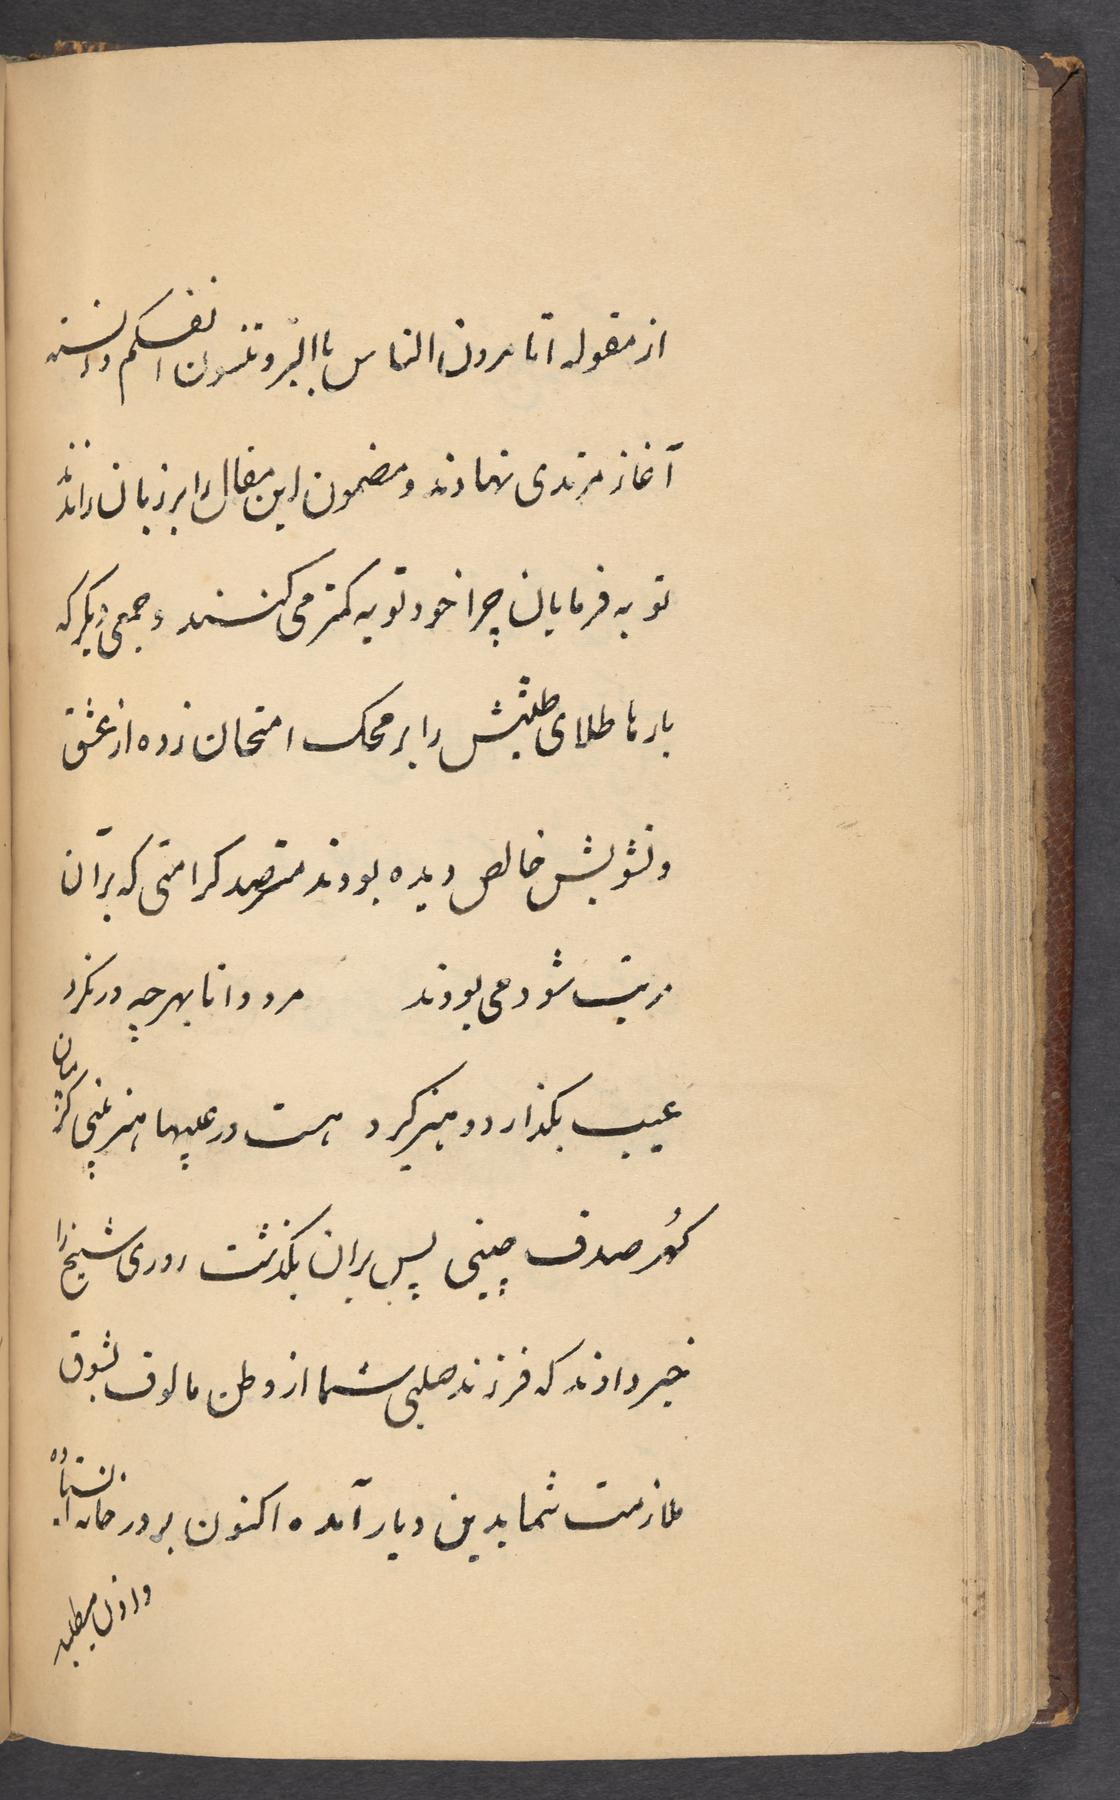 از مقوله اتامرون الناس باالبر و تنسون انفسکم دانسته
آغاز مزندی نهادند و مضمون این مقال را بر زبان راندند
توبه فرمایان چرا خود توبه کمتر می کنند و جمعی دیگر که
بارها طلای طلبش را بر محک امتحان زده از عشق
و تشویش خالص دیده بودند مترصد کرامتی که بر آن
مرتب شود می بودند مرد دانا بهرچه درنگرد
عیب بگذارد و هنر گیرد هست در عیبها هنر غنی کزمیان
گهر صدف چینی پس بران بگذشت روزی شیخ را
خبر دادند که فرزند صلبی شما از وطن مالوف بشوق
ملازمت شما بدین دیار آمده اکنون بر در خانه ایستاده
و اذن میطلبد